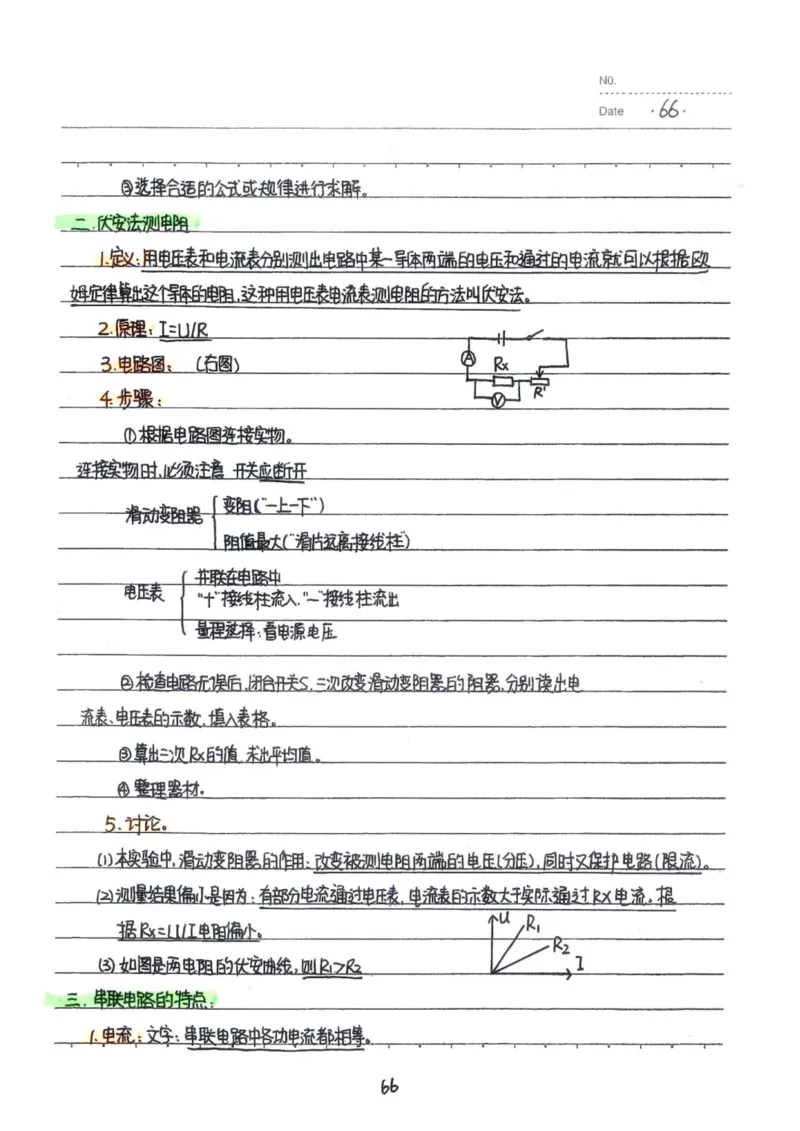 NO.
Date ·66·
③选择合适的公式或规律进行求解。
二.伏安法测电阻
1.定义:用电压表和电流表分别测出电路中某一导体两端的电压和通过的电流就可以根据欧
姆定律算出这个导体的电阻,这种用电压表电流表测电阻的方法叫伏安法。
2.原理:I=U/R
3.电路图:(右图)
A Rx
V R'
4.步骤:
①根据电路图连接实物。
连接实物时,必须注意 开关应断开
滑动变阻器
变阻("一上一下")
阻值最大("滑片远离接线柱")
电压表
并联在电路中
"+"接线柱流入,"-"接线柱流出
量程选择:看电源电压
②检查电路无误后,闭合开关S,三次改变滑动变阻器的阻器,分别读出电
流表、电压表的示数,填入表格。
③算出三次Rx的值,求出平均值。
④整理器材。
5.讨论。
(1)本实验中,滑动变阻器的作用:改变被测电阻两端的电压(分压),同时又保护电路(限流)。
(2)测量结果偏小是因为:有部分电流通过电压表,电流表的示数大于实际通过RX电流。根
据Rx=U/I电阻偏小。
U R₁
R₂
I
(3)如图是两电阻的伏安曲线,则R₁>R₂
三.串联电路的特点:
1.电流:文字:串联电路中各功电流都相等。
66